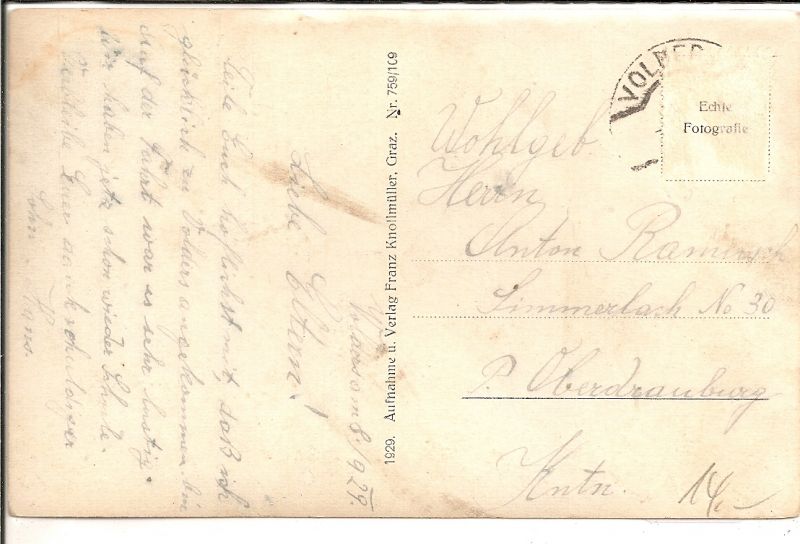 Volders am 8./9 29.
Liebe Eltern!
Teile Euch höflichst mit, daß ich
glücklich zu Volders angekommen bin
Auf der Fahrt war es sehr lustig.
Wir haben jetz schon wieder Schule.
Verbleibe Euer dankschuldiger
Sohn Hans.
1929. Aufnahme u. Verlag Franz Knollmüller, Graz. Nr. 759/109
VOLDER
Echte
Fotografie
Wohlgeb.
Herrn
Anton
Simmerlach No 30
P. Oberdrauburg
Kntn.
14.-